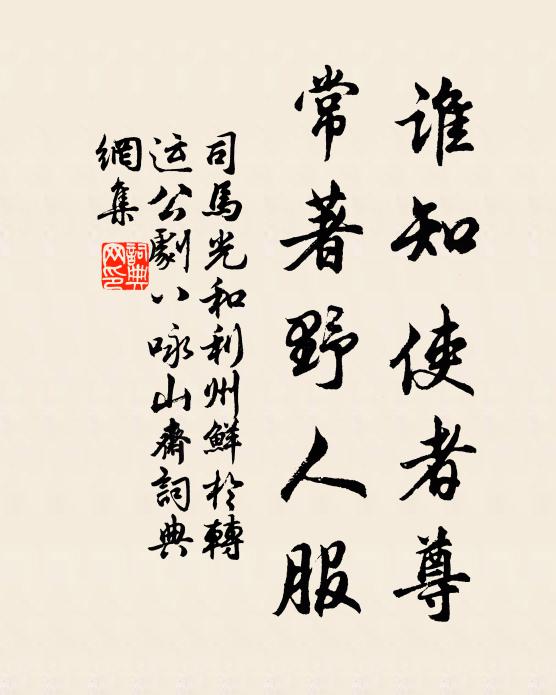 誰知使者尊
常著野人服
司馬光和利州鮮於轉
运公劇八咏山齋詞典
網集
詞典網印